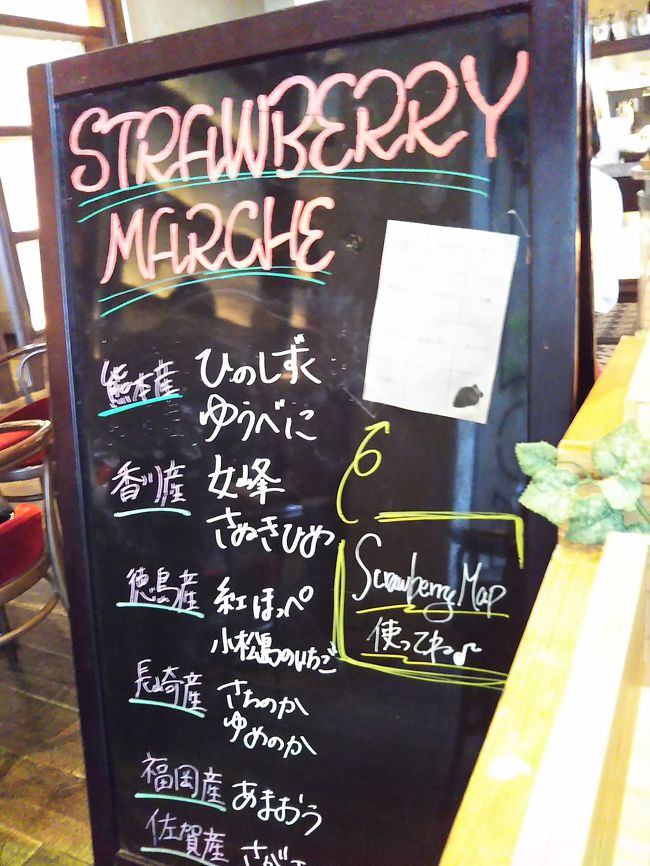 STRAWBERRY
MARCHE
熊本産 ひのしずく
ゆうべに
香川産 女峰
さぬきひめ
徳島産 紅ほっぺ
小松島のいちご
長崎産 さちのか
ゆめのか
福岡産 あまおう
佐賀産 さが
Strawberry Map
使ってね♪